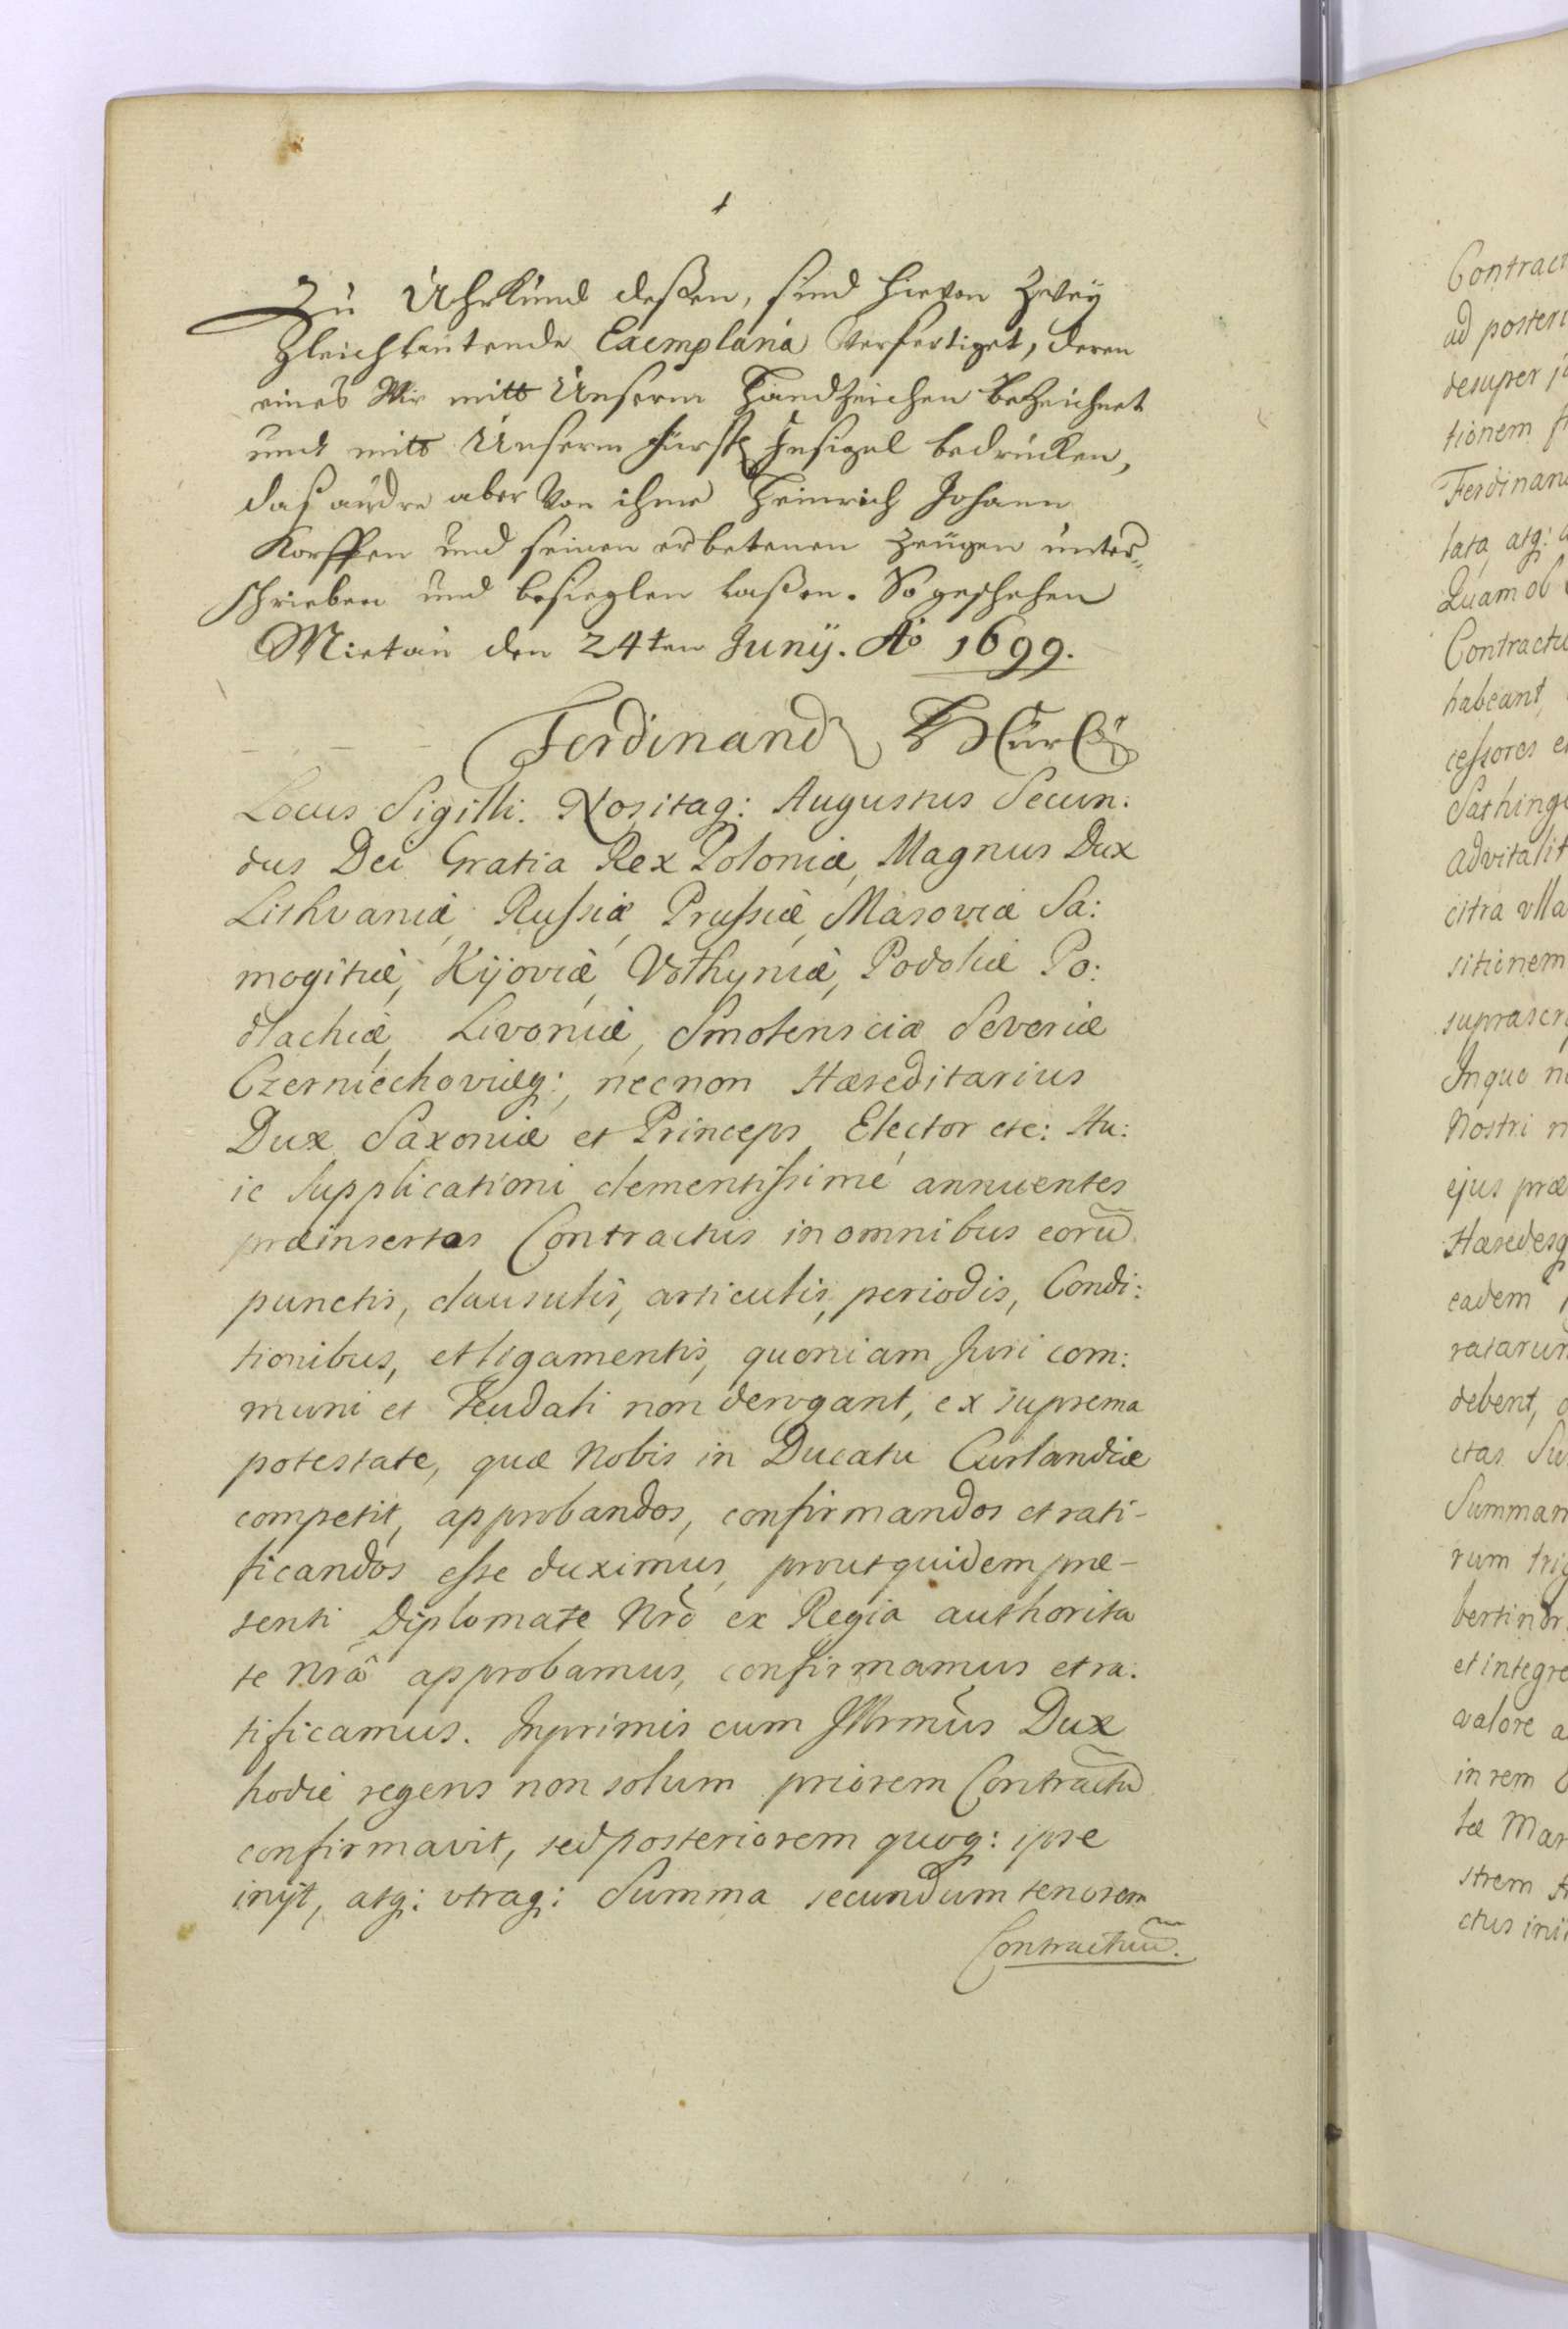 Zu Uhrkund deßen, sind hievon Zweÿ
Gleichlautende Exemplaria Verfertiget, deren
eines Wir mitt Unserm Handzeichen bezeichnet
und mitt Unserm Fürstl. Insigel bedrucken,
daß andre aber Von ihme Heinrich Johann
Korffen und seinen erbetenen Zeugen unter„
schrieben und besieglen laßen. So geschehen
Mietau den 24ten Junÿ. Ao 1699.
Ferdinand
Locus Sigilli. Nositaq: Augustus Secun:
dus Dei Gratia Rex Poloniæ, Magnus Dux
Lithvaniæ, Russiæ, Prussiæ, Masoviæ Sa:
mogitiæ, Kijoviæ, Volhyniæ, Podoliæ Po:
dlachiæ, Livoniæ, Smolensciæ Severiæ
Czerniechoviæq:, necnon Hæreditarius
Dux Saxoniæ et Princeps Elector etc: Hu:
ic Supplicationi clementissimé annuentes
præinsertos Contractus in omnibus eorũ
punctis, clausulis, articulis, periodis, Condi:
tionibus, et ligamentis, quoniam Juri com:
muni et Feudali non derogant, ex suprema
potestate, quæ Nobis in Ducatu Curlandiæ
competit, approbandos, confirmandos et rati-
ficandos esse duximus, prout quidem præ-
senti Diplomate Nrō ex Regia authorita
te Nrâ approbamus, confirmamus et ra:
tificamus. Inprimis cum Illrmūs Dux
hodie regens non solum priorem Contractũ
confirmavit, sed posteriorem quoq: ipse
inijt, atq: utraq: Summa secundum tenorem
Contractuũ.
Contract
ad posteri
desuper
tionem
Ferdinand
lata, atq:
Quam ob
Contractu
habeant,
cessores
Sathing
advitalit
citra ulla
sitionem
suprascr
In quo
Nostri
ejus præ
Hæredesq
eadem
ratarum
debent,
ctas
Summam
rum
bertinor
et integre
valore
in rem
tæ Mar
strem
ctus inii